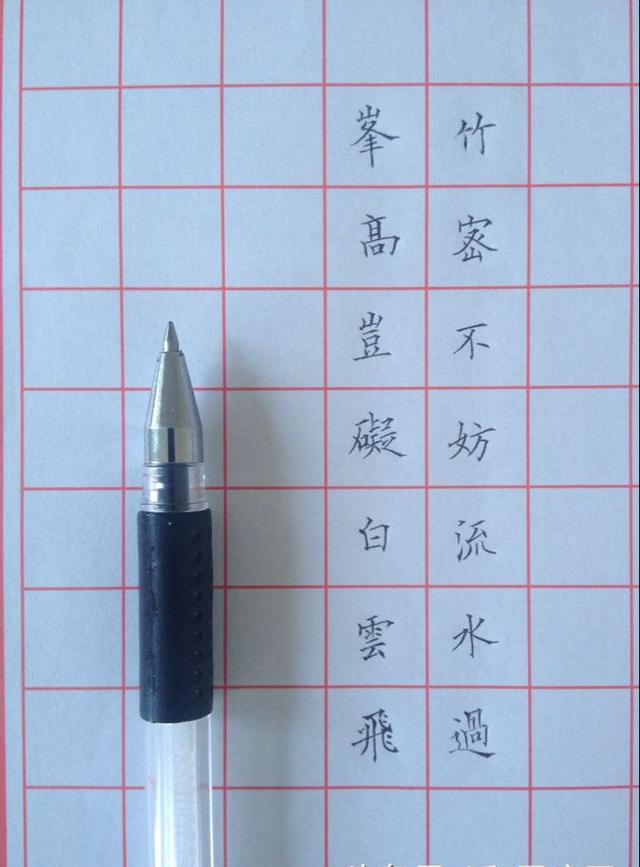 竹密不妨流水過
峯高豈礙白雲飛